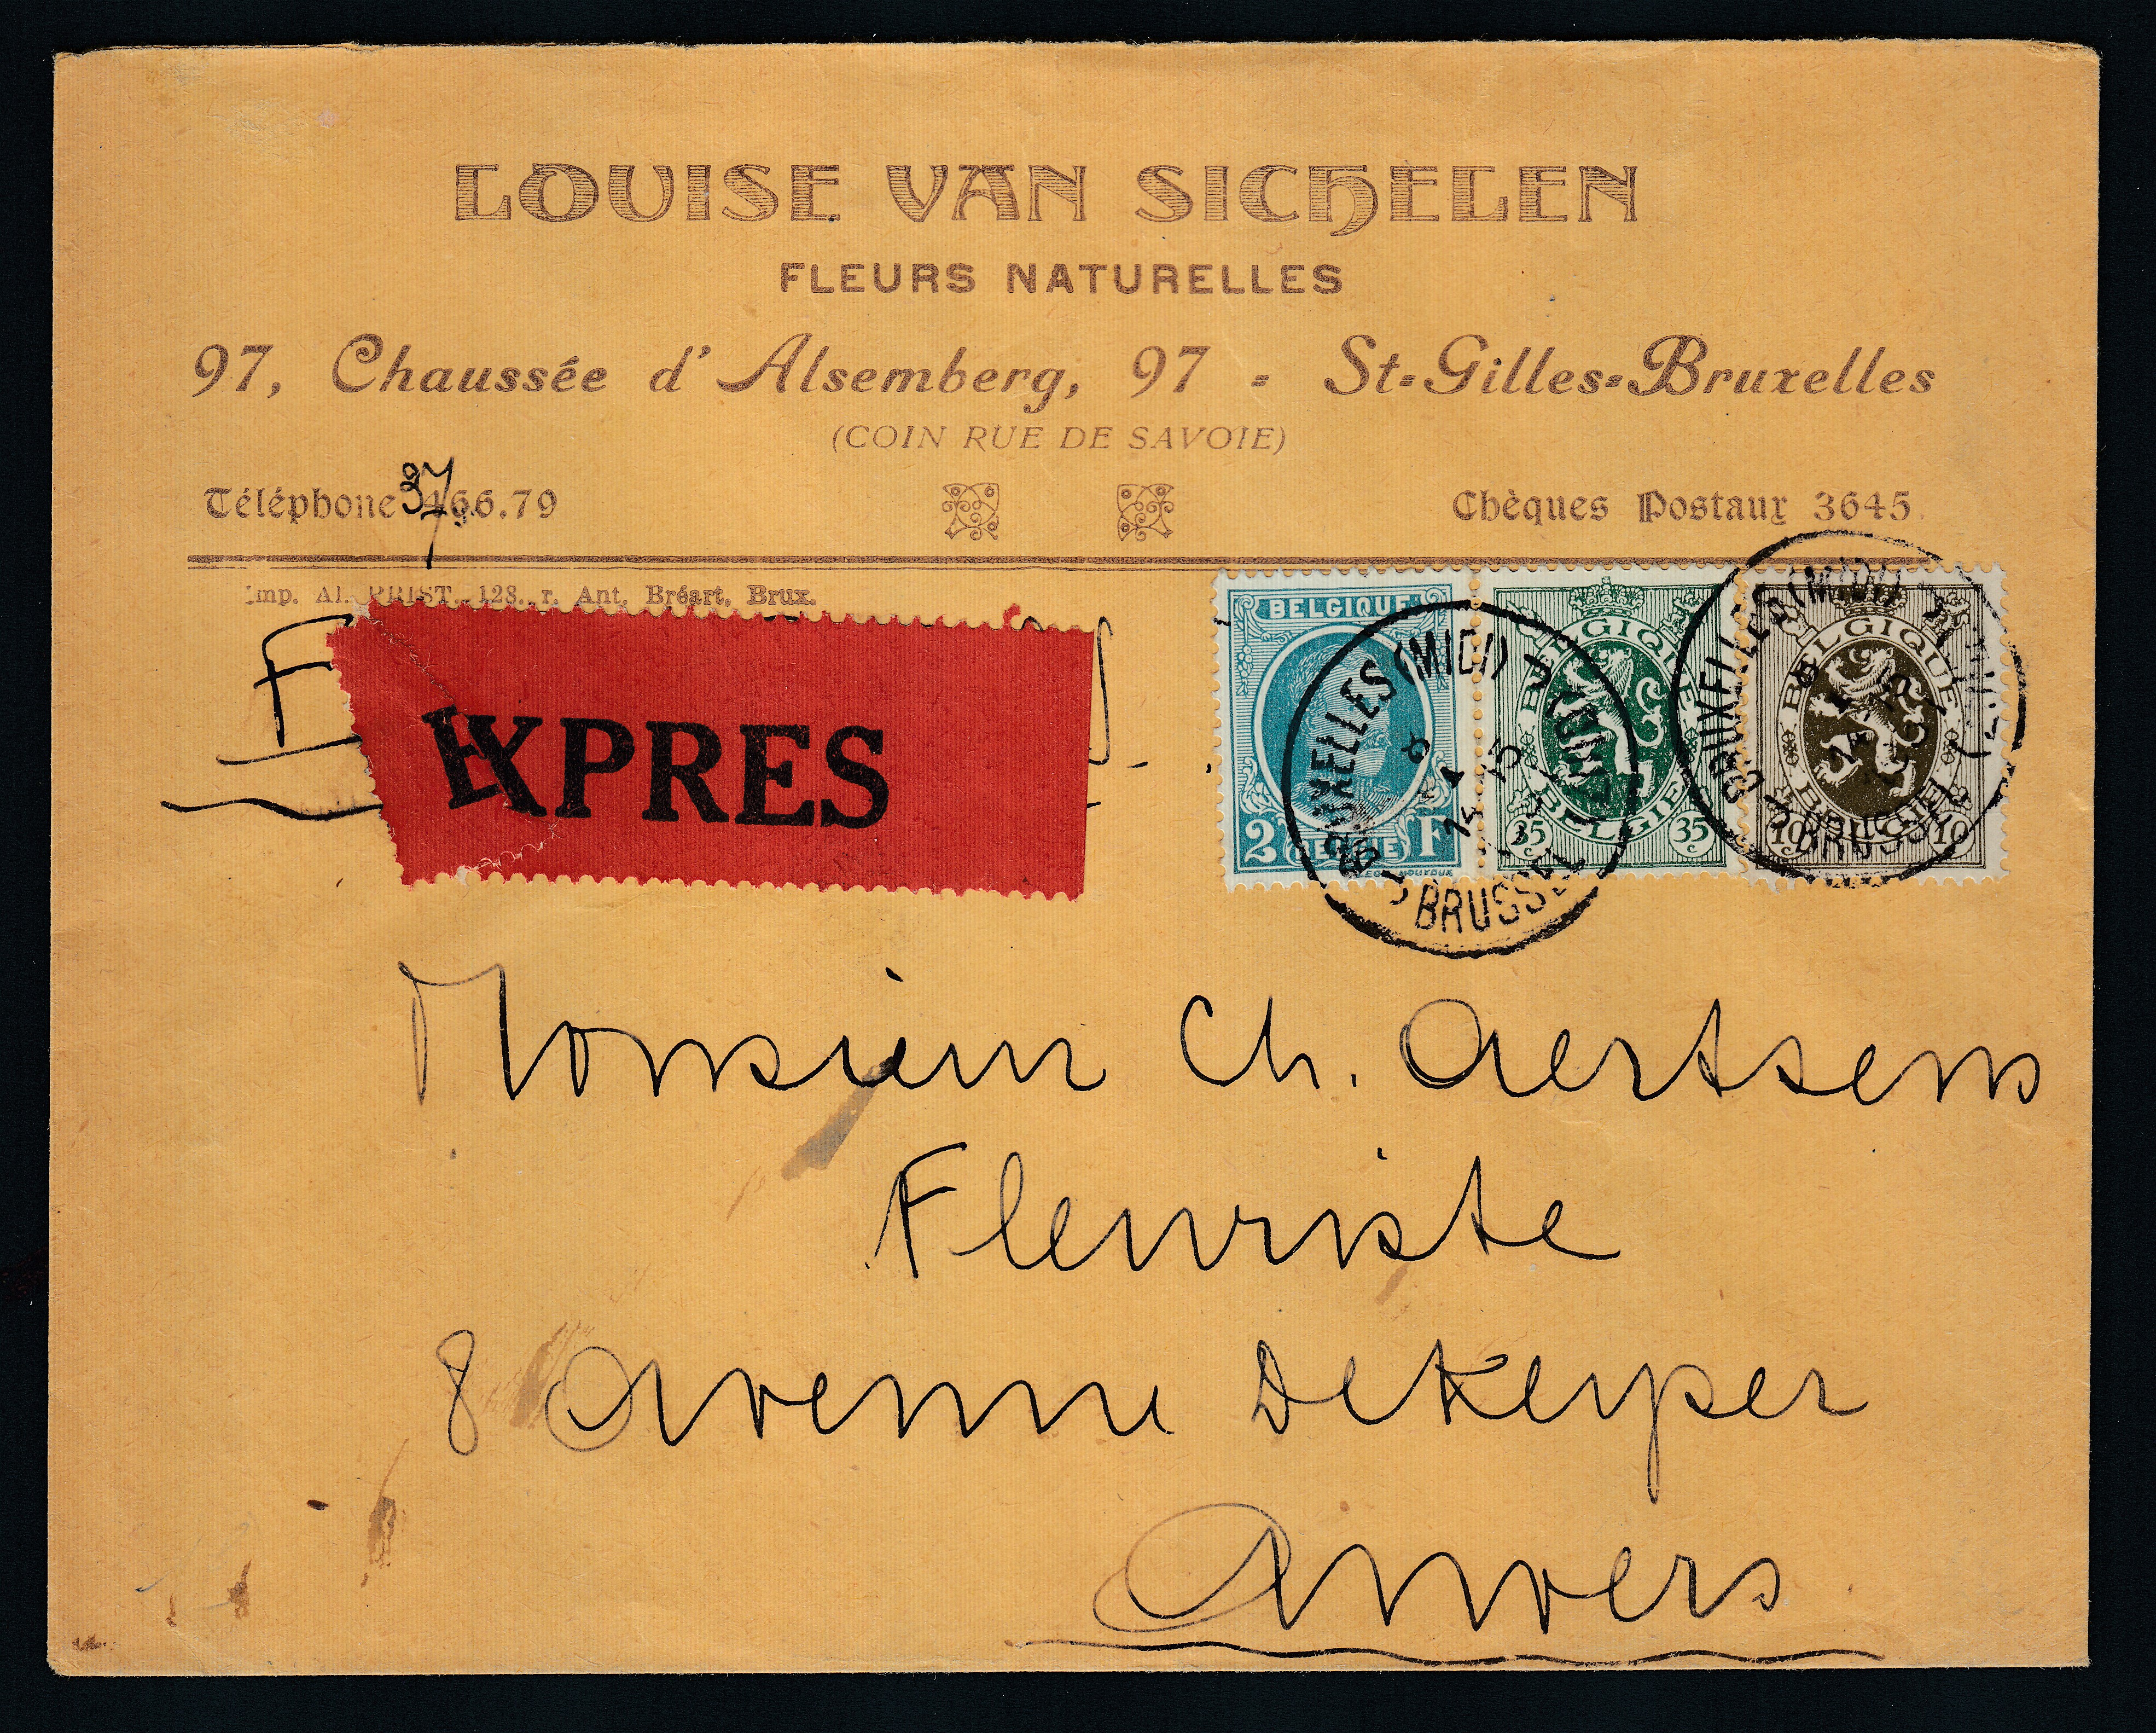 LOUISE VAN SICHELEN
FLEURS NATURELLES
97, Chaussée d'Alsemberg, 97 - St-Gilles-Bruxelles
(COIN RUE DE SAVOIE)
Téléphone 37.66.79
Chèques Postaux 3645
Imp. Al. PRIST, 128, r. Ant. Bréart, Brux.
EXPRES
BELGIQUE
2 BELGIE F
BELGIQUE
35 BELGIE 35
BELGIQUE
10 BELGIE 10
BRUXELLES (MIDI)
BRUSSEL (ZUID)
BRUXELLES (MIDI)
BRUSSEL
Monsieur Ch. Aertsens
Fleuriste
8 Avenue De Keyper
Anvers